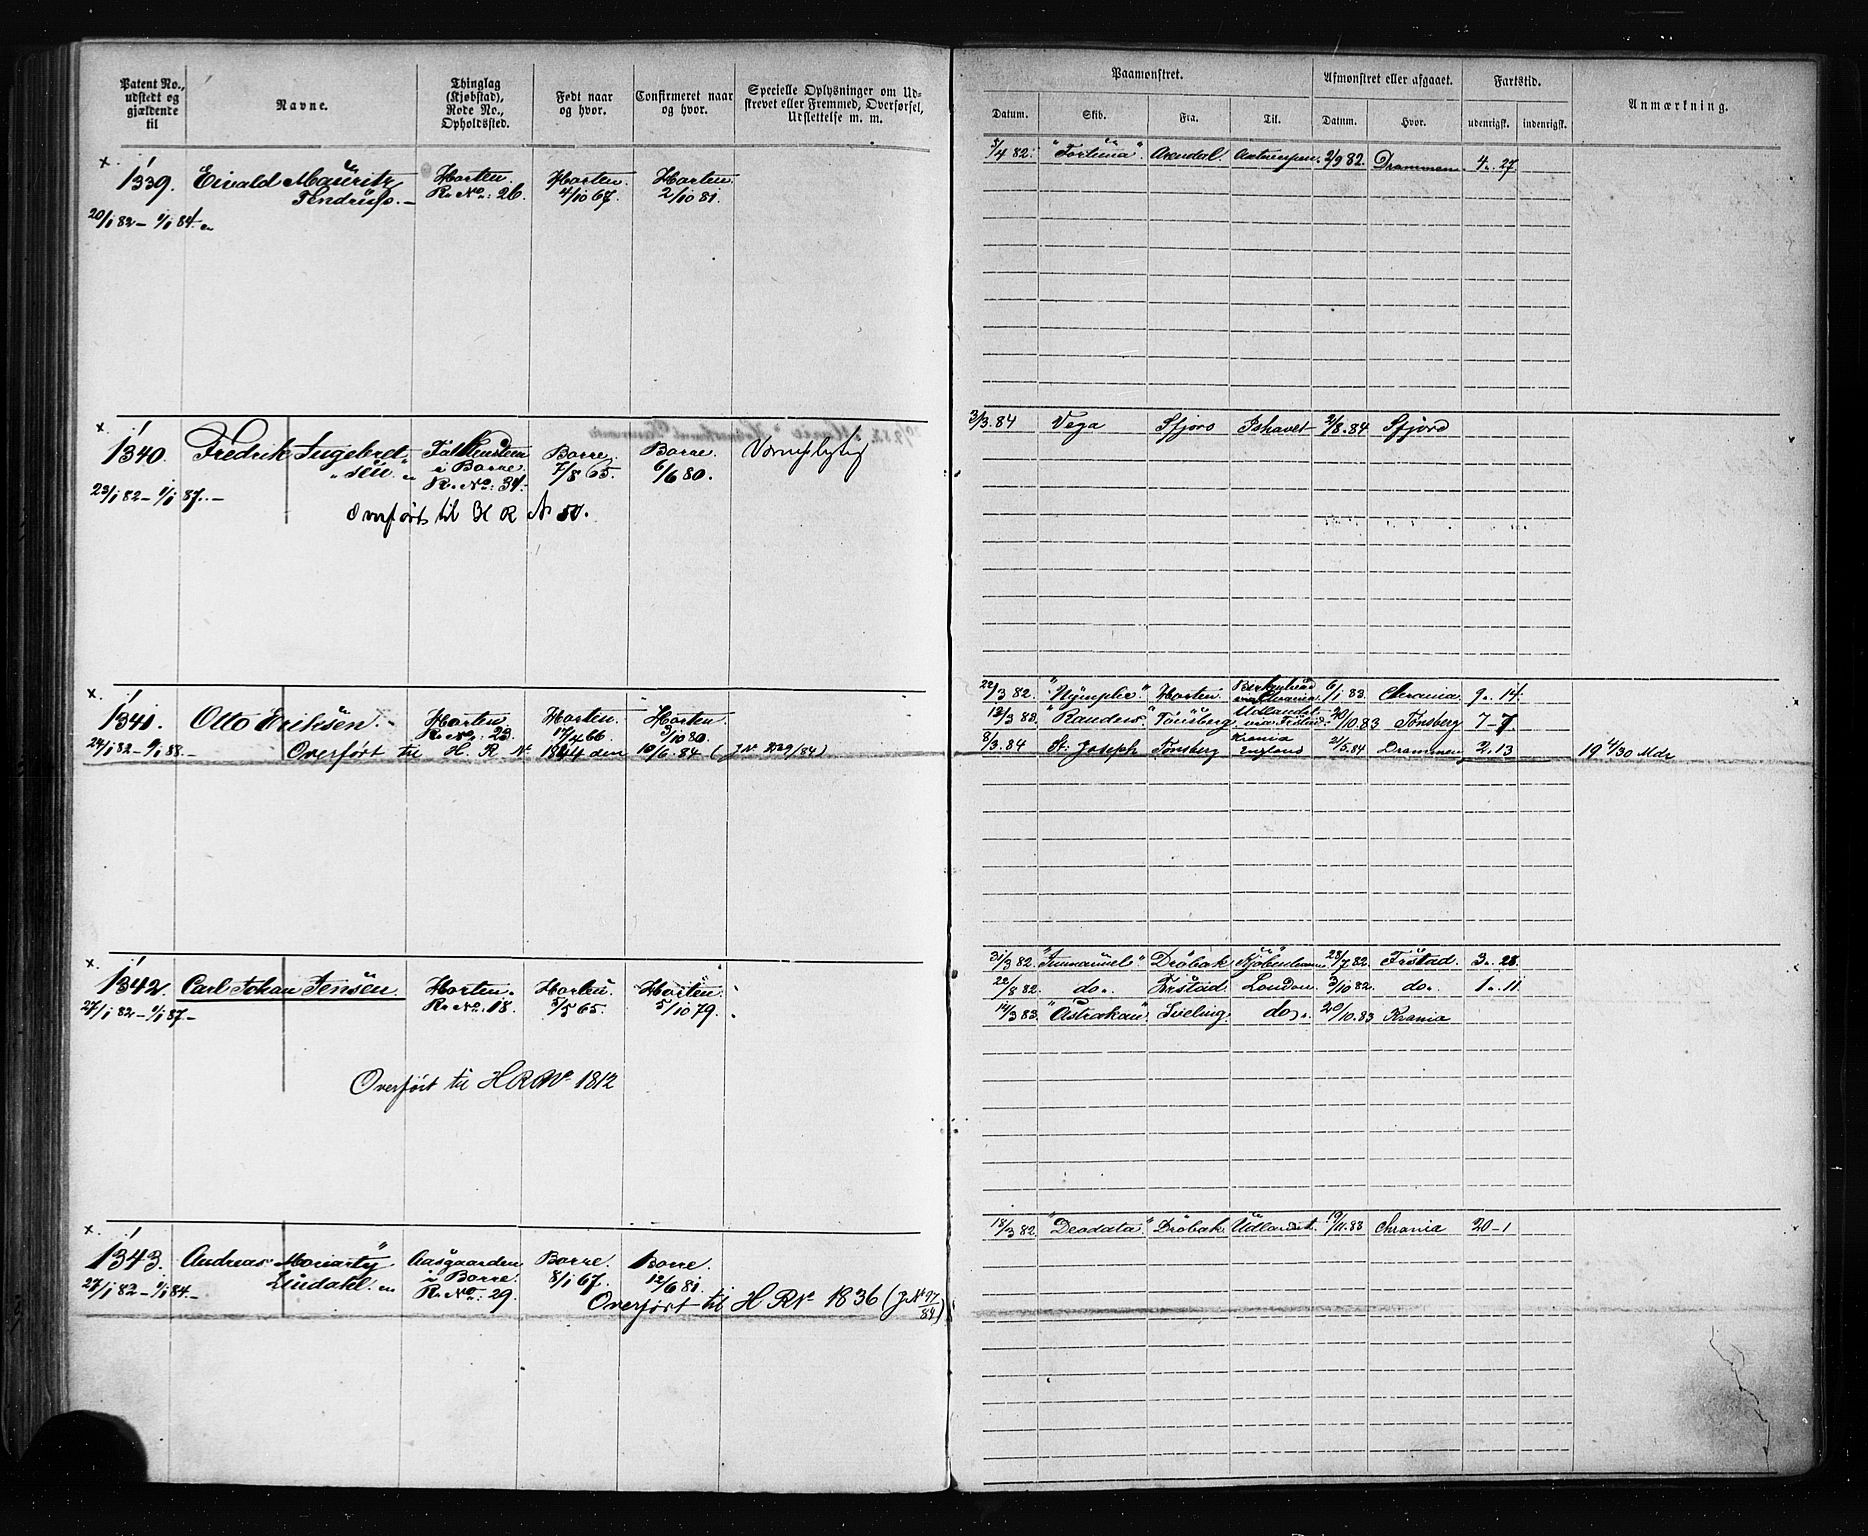 Patent No., udstedt og gjældende til
Navne.
Thinglag (Kjøbstad), Rode No., Opholdssted.
Født naar og hvor.
Confirmeret naar og hvor.
Specielle Oplysninger om Udskrevet eller Fremmed, Overførsel, Udslettelse m. m.
Paamønstret.
Afmønstret eller afgaaet.
Fartstid.
Anmærkning.
Datum.
Skib.
Fra.
Til.
Datum.
Hvor.
udenrigsk.
indenrigsk.
x.
1339. Eivald Mauritz Horten. Horten. Horten.
R. No.: 26. 4/10 67. 2/10 81.
20/1 82 – 1/1 84.
3/4 82. "Fortuna". Arendal. Antwerpen. 2/9 82. Drammen. 4. 27
x.
1340. Fredrik Ingebret- Falkensten Borre. Borre. Vernepligtig
sen. i Borre 7/8 65. 6/6 80.
R. No.: 34.
23/1 82 – 1/1 87.
Overført til H R No 50.
3/3. 84 Vega Sfjord Ishavet 2/8. 84 Sfjord
x.
1341. Otto Eriksen. Horten. Horten. Horten.
R. No.: 23. 17/4 66. 3/10 80.
24/1 82 – 1/1 88. Overført til H. R. No. 1544 den 10/6. 84 (J. No. 229/84)
22/3 82. "Nymphe". Horten. 6/1 83. Chrania. 9. 14
12/3 83. "Randers". Tønsberg. Udlandet via Frstad. 20/10. 83 Tønsberg 7–7
8/3. 84 St. Joseph Tønsberg Krania England 2/5. 84 Drammen 2. 13 19 4/30 Mdr
x.
1342. Carl Johan Jensen. Horten. Horten. Horten.
R. No. 18. 5/5 65. 5/10 79.
27/1 82 – 1/1 87 –
Overført til H R No 1812
31/3 82. "Immanuel". Drøbak. Kjøbenhavn 28/7 82. Frstad. 3. 28
22/8 82. do. Frstad. London. 3/10 82. do. 1. 11
14/3 83. "Astrakan". Svelvig. do. 20/10. 83 Krania
x.
1343. Andreas Moriarty Aasgaarden Borre. Borre.
Lindahl. i Borre. 8/1 67. 12/6 81.
R. No. 29.
27/1 82 – 1/1 84. –
Overført til H R No 1836 (J No 97/84)
18/3 82. "Deodata". Drøbak. Udlandet. 19/11. 83 Chrania 20–1